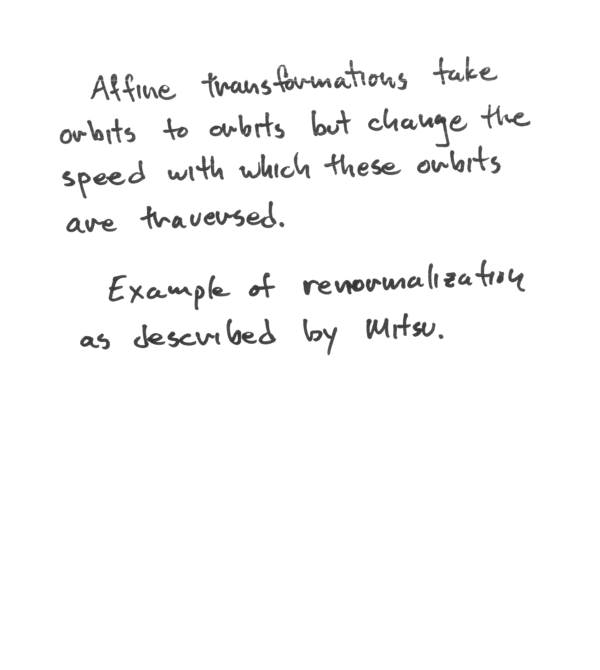 Affine transformations take
orbits to orbits but change the
speed with which these orbits
are traversed.
Example of renormalization
as described by Mitsu.